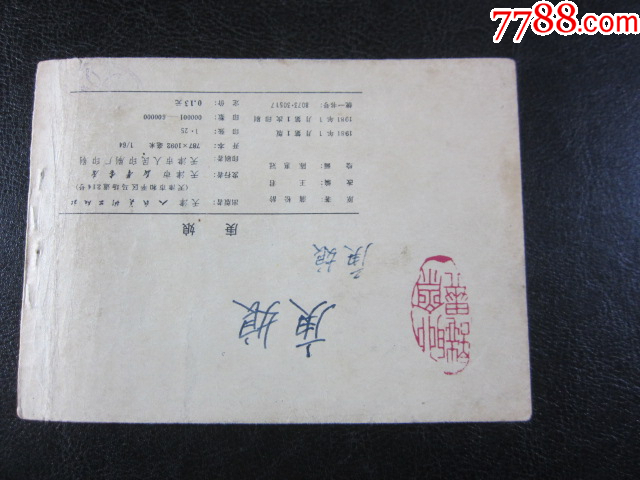 7788.com
庚 娘
原著：蒲松龄 出版者：天津人民美术出版社
（天津市和平区马场道214号）
改编：王 君 发行者：天津市新华书店
绘编：陈惠冠 印刷者：天津市人民印刷厂印刷
开 本：787×1092毫米 1/64
印 张：1·25
1981年1月第1版 印 数：000001—
1981年1月第1次印刷
统一书号：8073·30517 定 价：0.13元
庚娘
庚娘